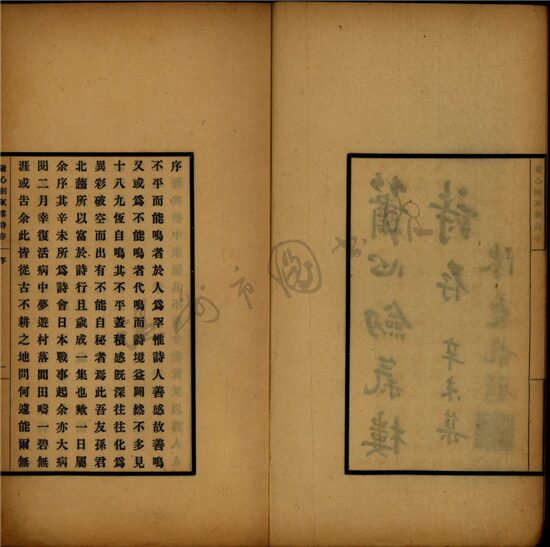 簫心劍氣樓
詩存 辛未集
序
不平而能鳴者於人為罕惟詩人善感故善鳴
又或為不能鳴者代鳴而詩境益闢然不多見
十八九恆自鳴其不平蓋積感既深往往化為
異彩破空而出有不能自秘者焉此吾友孫君
北蘐所以富於詩行且歲成一集也歟一日屬
余序其辛未所為詩會日本戰事起余亦大病
閱二月幸復活病中夢遊村落間田疇一碧無
涯或告余此皆從古不耕之地問何遽能爾無
簫心劍氣樓詩存 序 一